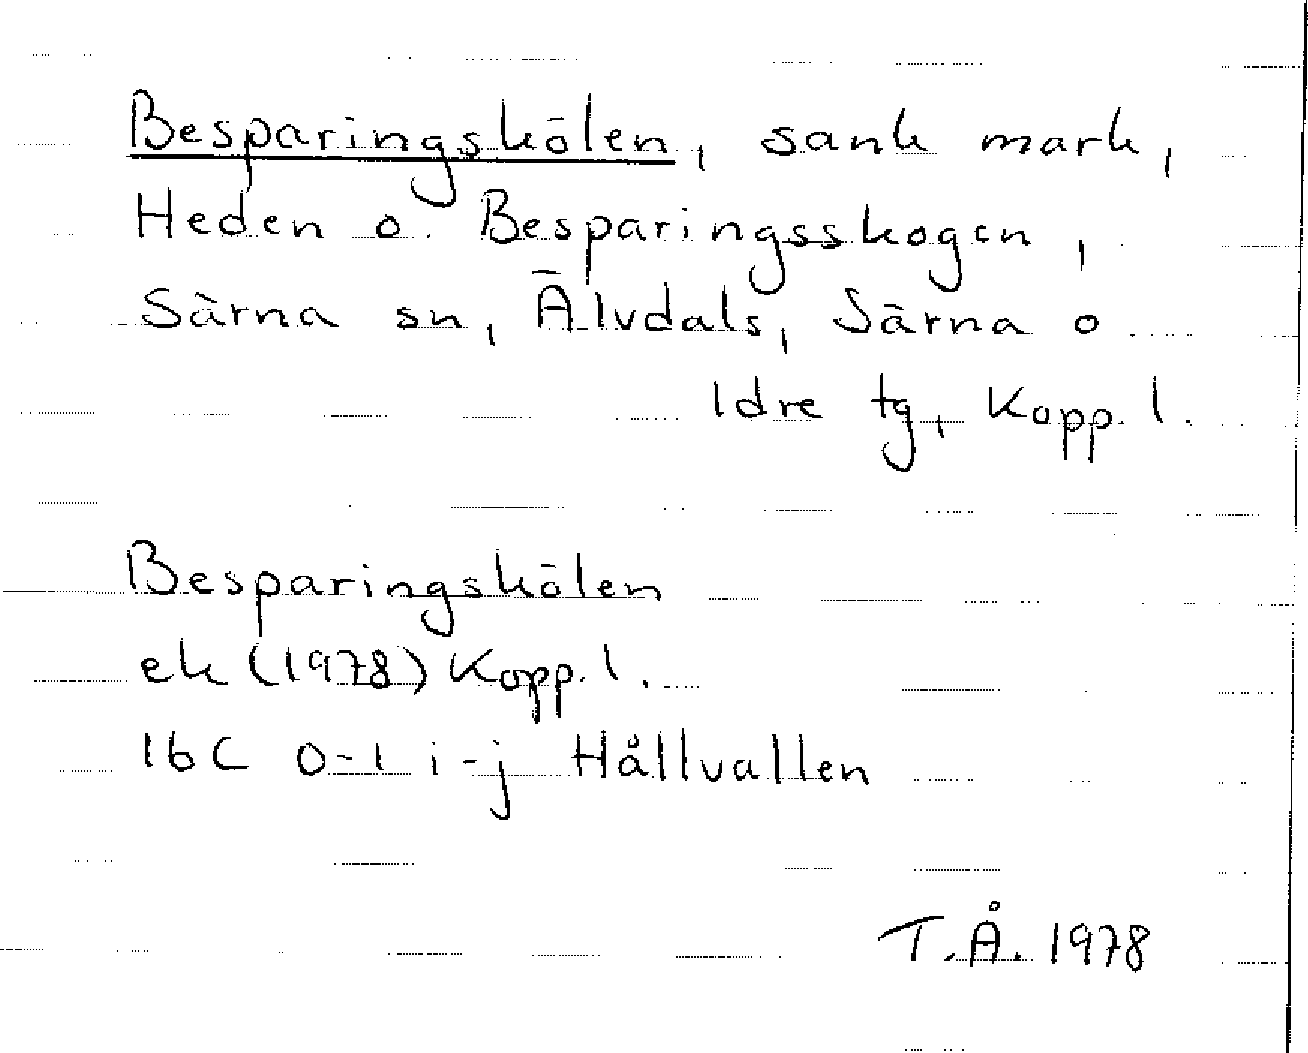 Besparingskölen, sank mark,
Heden o. Besparingsskogen,
Särna sn, Älvdals, Särna o
Idre tg, Kopp. l.
Besparingskölen
ek (1978) Kopp. l.
16C 0-1 i-j Hållvallen
T.Å. 1978